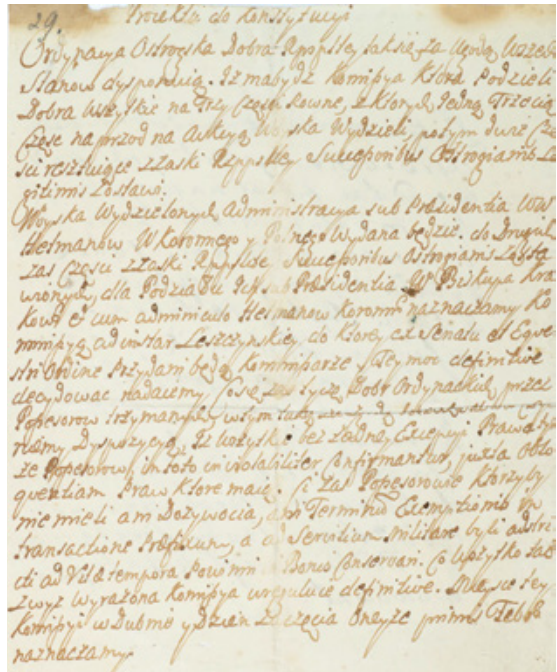 29. Proiektu do Konstytucyi
Ordynacya Ostrogska Dobra Rpptey takie za zgodą wszech
Stanow dysponuią. Iż ma bydz Kommissya Ktora Podzieli
Dobra Wszytkie na trzy Części rowne, z Ktorych Jedną Trzecią
Częsc na przod na Aukcyą Woyska Wydzieli, potym dwie Czę
sci resztuiące z łaski Rzppltey Successoribus Ostrogianis Le
gitimis Zostawi.
Woyska Wydzielonych administracya sub Praesidentia
Hetmanow W. Koronnego y Polnego wydana będzie, do Drugich
zas Części z łaski Rpptey Successoribus Ostrogianis Zosta
wionych, dla Podziału Ich sub Praesidentia Biskupa Kra
kows. et cum adminiculo Hetmanow Koronn. naznaczamy Ko
mmissyą ad instar Leszczynskiey, do Ktorey ex Senatu et Eque
stri Ordine Przydani będą Kommissarze, y Tey moc definitive
decydowac nadaiemy. Co się zas tycze Dobr Ordynackich przez
Possessorow trzymanych, w tym
niemy Dyspozycyą, Iż wszytkie bez żadney Excepcyi Prawa ty
że Possessorow, in toto inviolabiliter Confirmantur, juxta oblo
quentiam Praw Ktore maią. Ci zas Possessorowie Ktorzyby
nie mieli ani Dożywocia, ani Terminu Exemptionis in
transactione Praefixum, a ad Servitium Militare byli adstri
cti ad Vitae tempora Powinni in Bonis Conservari. Co wszytko ta
zwyż wyrażona Komissya ureguluie definitive. Mieysce tey
Komissyi w Dubnie y dzien Zaczęcia Oneyże prima Febr.
naznaczamy.